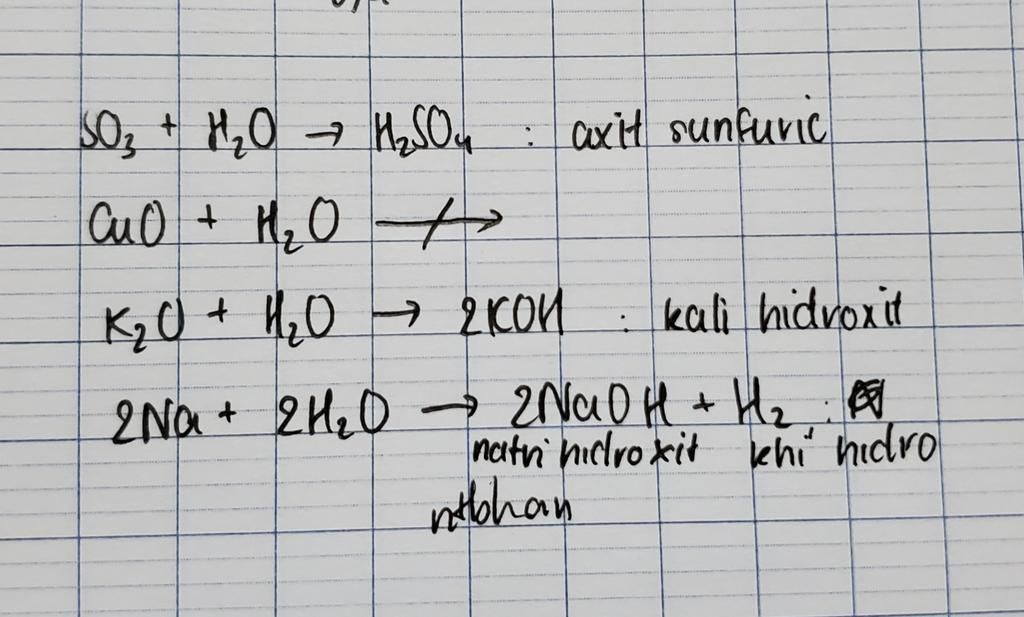 SO₃ + H₂O → H₂SO₄ : axit sunfuric
CuO + H₂O ↛
K₂O + H₂O → 2KOH : kali hidroxit
2Na + 2H₂O → 2NaOH + H₂ :
natri hidroxit khí hidro